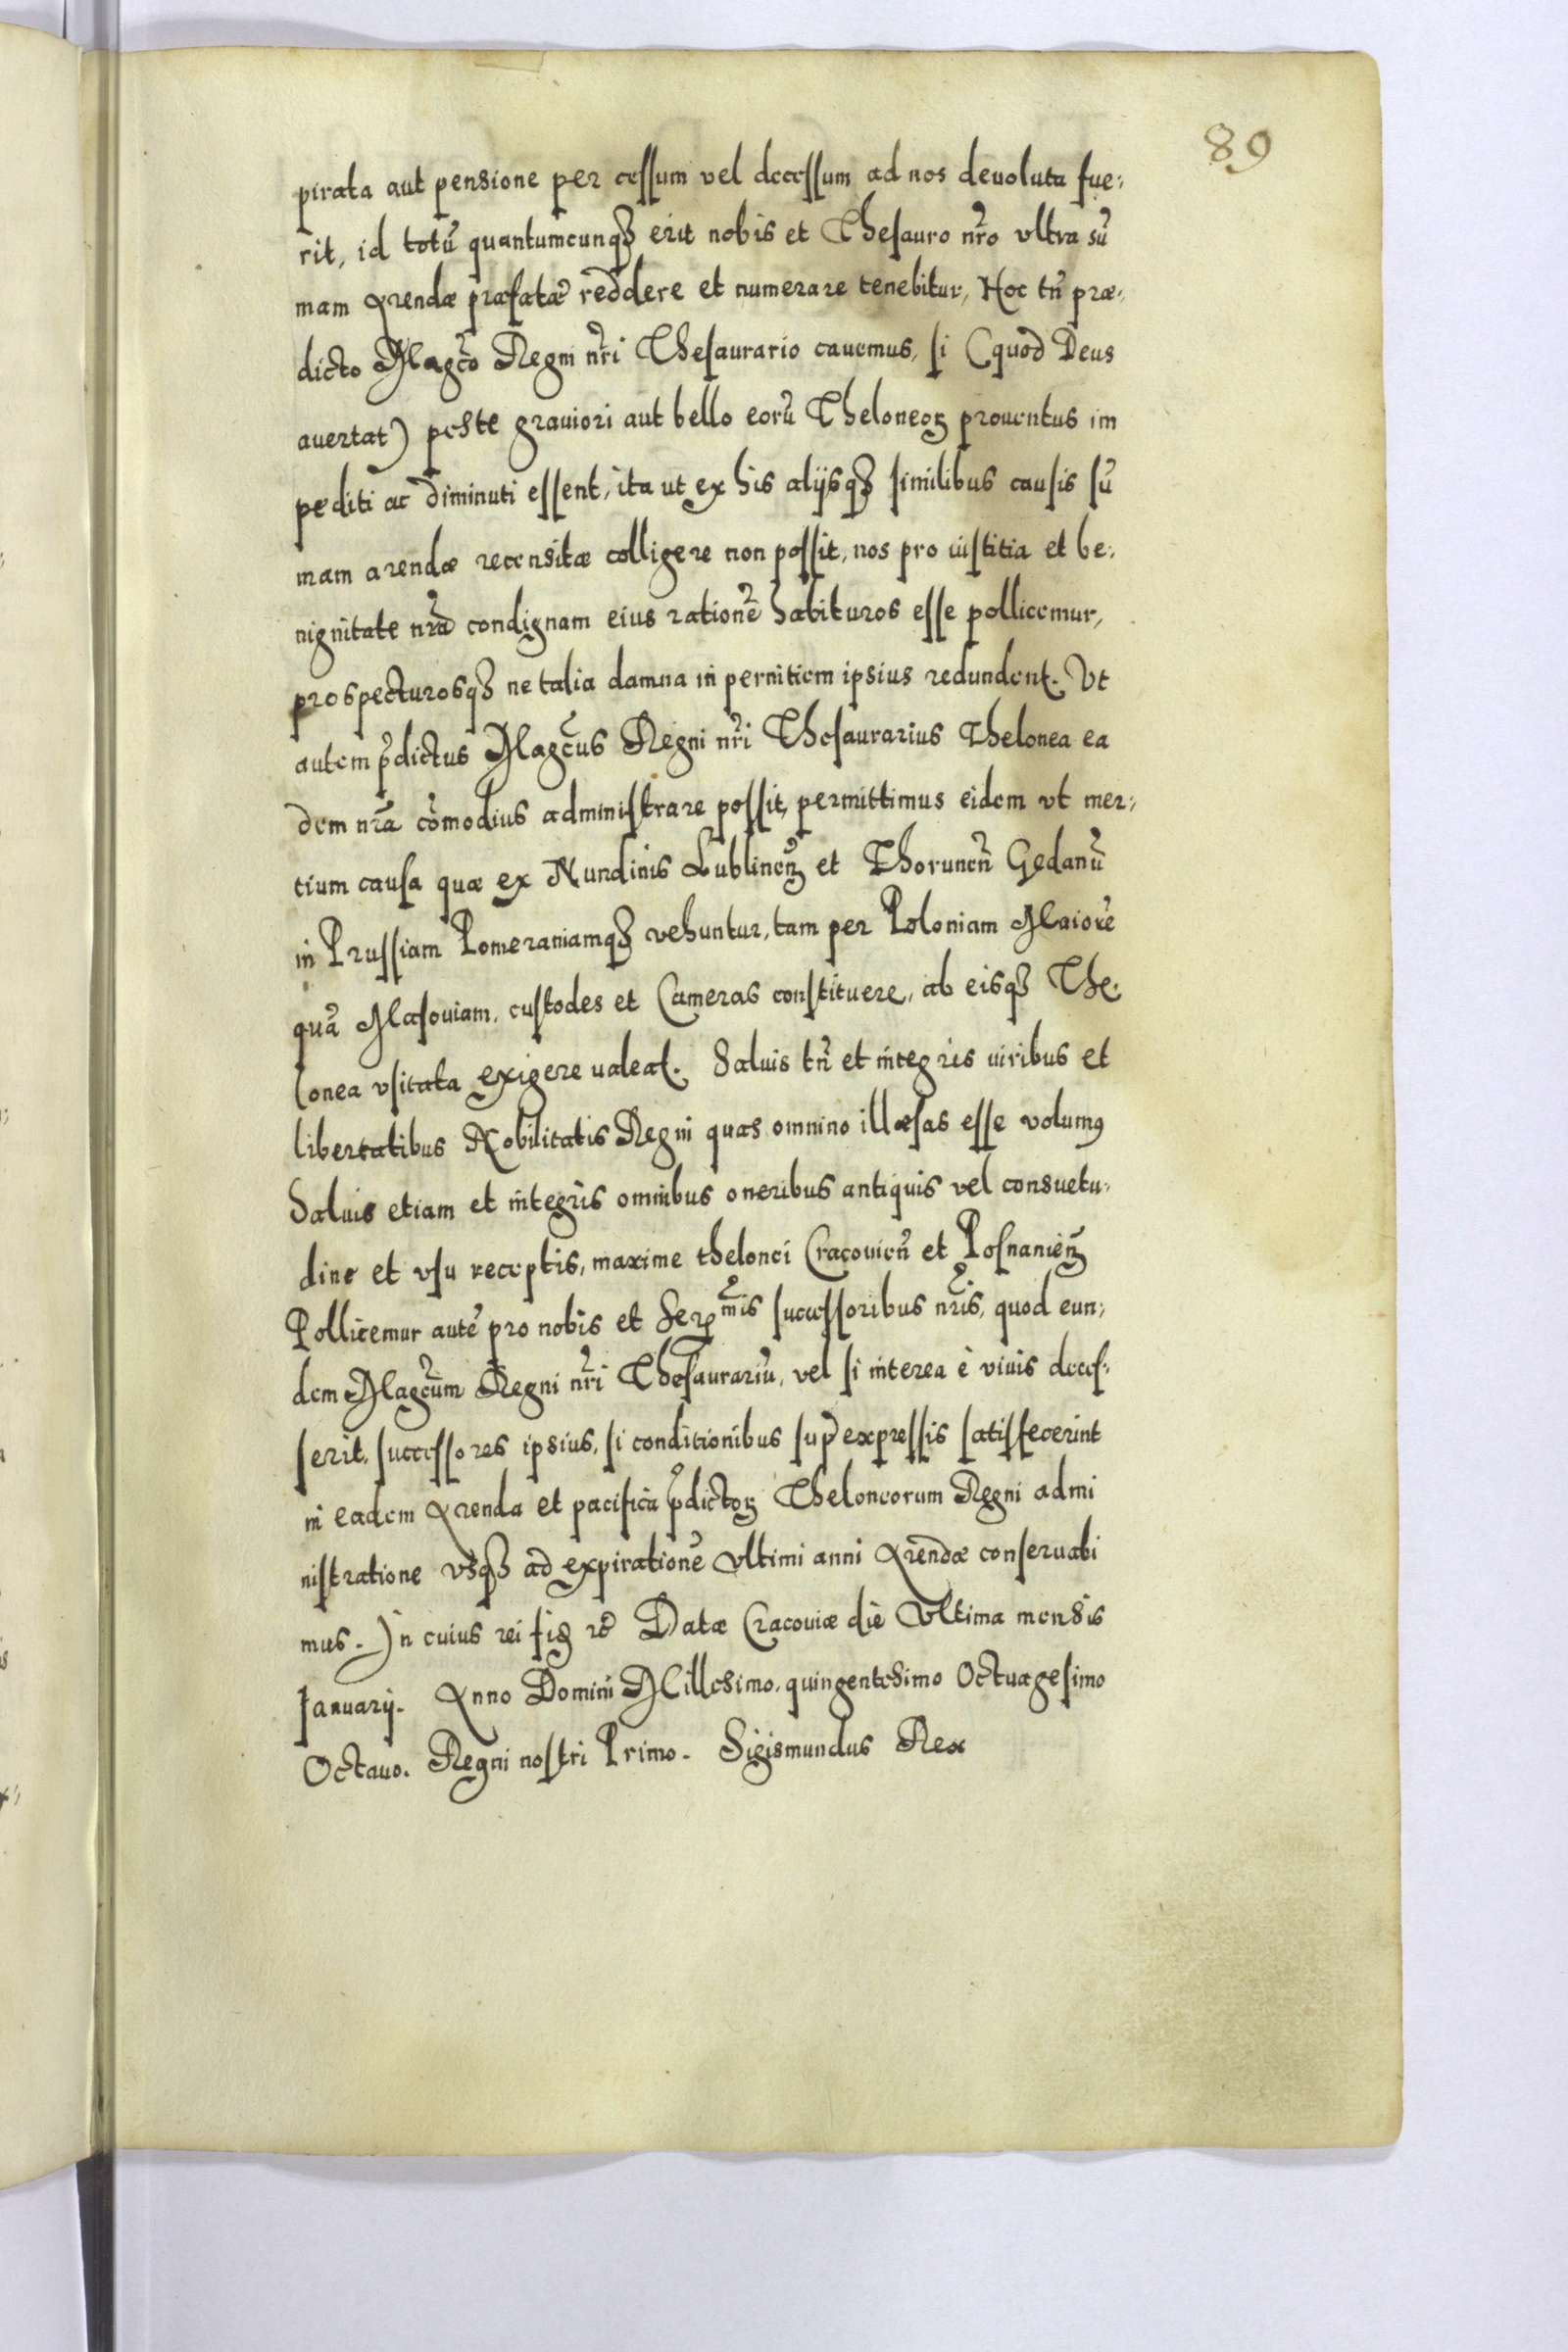 89
pirata aut pensione per cessum vel decessum ad nos deuoluta fue:
rit, id totū quantumcunqȝ erit nobis et Thesauro nr̃o vltra sū
mam Arendæ præfatæ reddere et numerare tenebitur, Hoc tñ præ:
dicto Magc̃o Regni nr̃i Thesaurario cauemus, si (quod Deus
auertat) peste grauiori aut bello eorū Theloneoꝝ prouentus im
pediti ac diminuti essent, ita ut ex his alijsqȝ similibus causis sū
mam arendæ recensitæ colligere non possit, nos pro iustitia et be:
nignitate nr̃a condignam eius rationē habituros esse pollicemur,
prospecturosqȝ ne talia damna in pernitiem ipsius redundent. Vt
autem p̃dictus Magc̃us Regni nr̃i Thesaurarius Thelonea ea
dem nr̃a cōmodius administrare possit, permittimus eidem vt mer:
tium causa quæ ex Nundinis Lublineñ et Thoruneñ Gedanū
in Prussiam Pomeraniamqȝ vehuntur, tam per Poloniam Maiorē
quā Masouiam, custodes et Cameras constituere, ab eisqȝ The:
lonea vsitata exigere ualeat. Saluis tñ et integris iuribus et
libertatibus Nobilitatis Regni quas omnino illæsas esse volumꝰ
Saluis etiam et integris omnibus oneribus antiquis vel consuetu:
dine et vsu receptis, maxime thelonei Cracouieñ et Posnanieñ
Pollicemur autē pro nobis et Serꝫmis successoribus nr̃is, quod eun:
dem Magc̃um Regni nr̃i Thesaurariū, vel si interea è viuis deces:
serit, successores ipsius, si conditionibus sup̃ expressis satisfecerint
in eadem Arenda et pacifica p̃dictoꝝ Theloneorum Regni admi
nistratione vsqȝ ad expirationē vltimi anni Arendæ conseruabi
mus. In cuius rei fiđ ꝛc̃ Datæ Cracouiæ die Vltima mensis
Januarij. Anno Domini Millesimo, quingentesimo Octuagesimo
Octauo. Regni nostri Primo. Sigismundus Rex